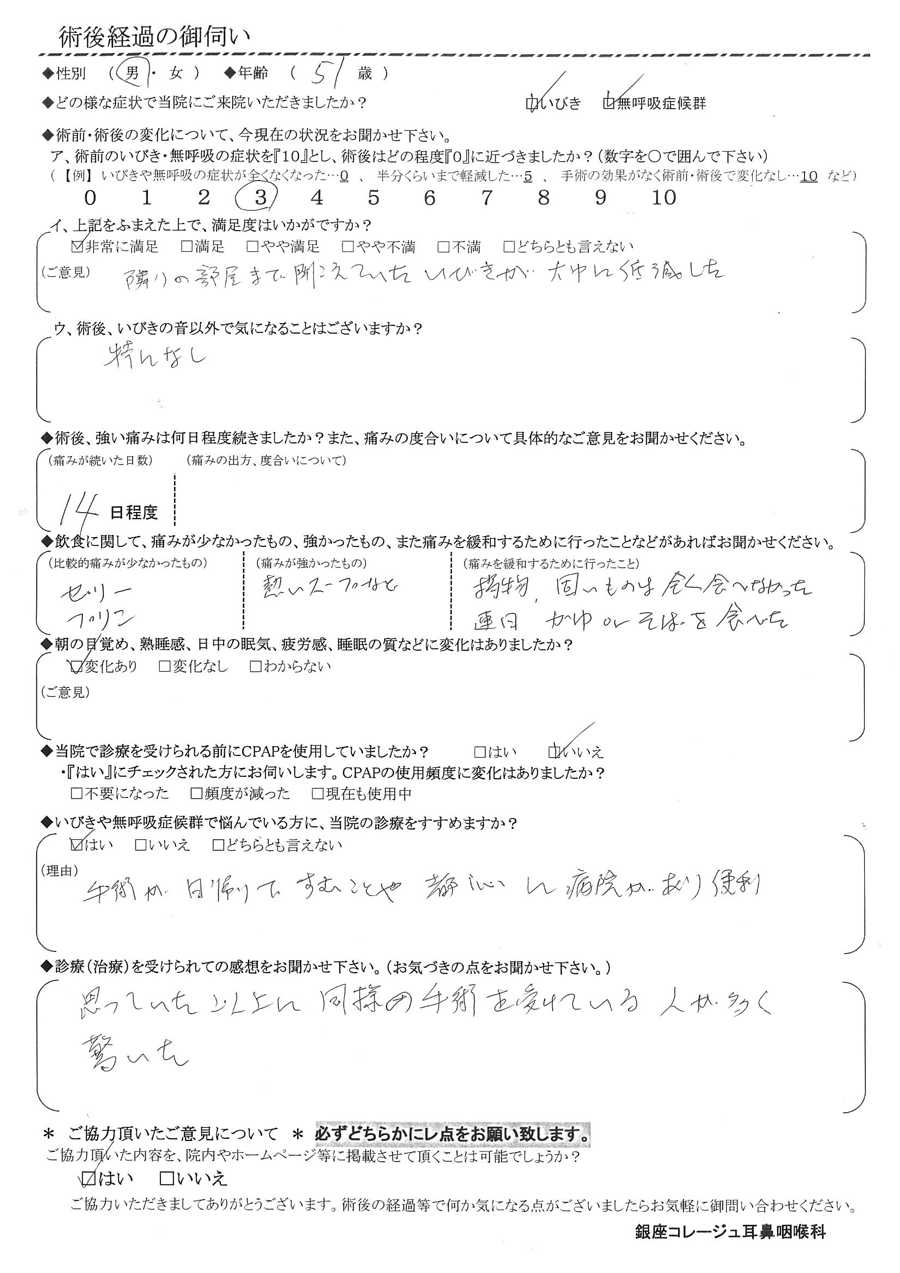 術後経過の御伺い
◆性別 (男・女) ◆年齢 (51歳)
◆どの様な症状で当院にご来院いただきましたか? ☑いびき ☑無呼吸症候群
◆術前・術後の変化について、今現在の状況をお聞かせ下さい。
ア、術前のいびき・無呼吸の症状を『10』とし、術後はどの程度『0』に近づきましたか?(数字を〇で囲んで下さい)
(【例】いびきや無呼吸の症状が全くなくなった…0 、 半分くらいまで軽減した…5 、 手術の効果がなく術前・術後で変化なし…10 など)
0 1 2 3 4 5 6 7 8 9 10
イ、上記をふまえた上で、満足度はいかがですか?
☑非常に満足 □満足 □やや満足 □やや不満 □不満 □どちらとも言えない
(ご意見) 隣りの部屋まで聞こえていたいびきが 大巾に低減した
ウ、術後、いびきの音以外で気になることはございますか?
特になし
◆術後、強い痛みは何日程度続きましたか?また、痛みの度合いについて具体的なご意見をお聞かせください。
(痛みが続いた日数) (痛みの出方、度合いについて)
14 日程度
◆飲食に関して、痛みが少なかったもの、強かったもの、また痛みを緩和するために行ったことなどがあればお聞かせください。
(比較的痛みが少なかったもの) (痛みが強かったもの) (痛みを緩和するために行ったこと)
ゼリー 熱いスープなど 揚物、固いものは全く食べなかった
プリン 連日 かゆ or そばを食べた
◆朝の目覚め、熟睡感、日中の眠気、疲労感、睡眠の質などに変化はありましたか?
☑変化あり □変化なし □わからない
(ご意見)
◆当院で診療を受けられる前にCPAPを使用していましたか? □はい ☑いいえ
・『はい』にチェックされた方にお伺いします。CPAPの使用頻度に変化はありましたか?
□不要になった □頻度が減った □現在も使用中
◆いびきや無呼吸症候群で悩んでいる方に、当院の診療をすすめますか?
☑はい □いいえ □どちらとも言えない
(理由) 手術が 日帰りで すむことや 都心に病院があり便利
◆診療(治療)を受けられての感想をお聞かせ下さい。(お気づきの点をお聞かせ下さい。)
思っていた以上に 同様の手術を受けている 人が多く
驚いた
＊ ご協力頂いたご意見について ＊ 必ずどちらかにレ点をお願い致します。
ご協力頂いた内容を、院内やホームページ等に掲載させて頂くことは可能でしょうか?
☑はい □いいえ
ご協力いただきましてありがとうございます。術後の経過等で何か気になる点がございましたらお気軽に御問い合わせください。
銀座コレージュ耳鼻咽喉科